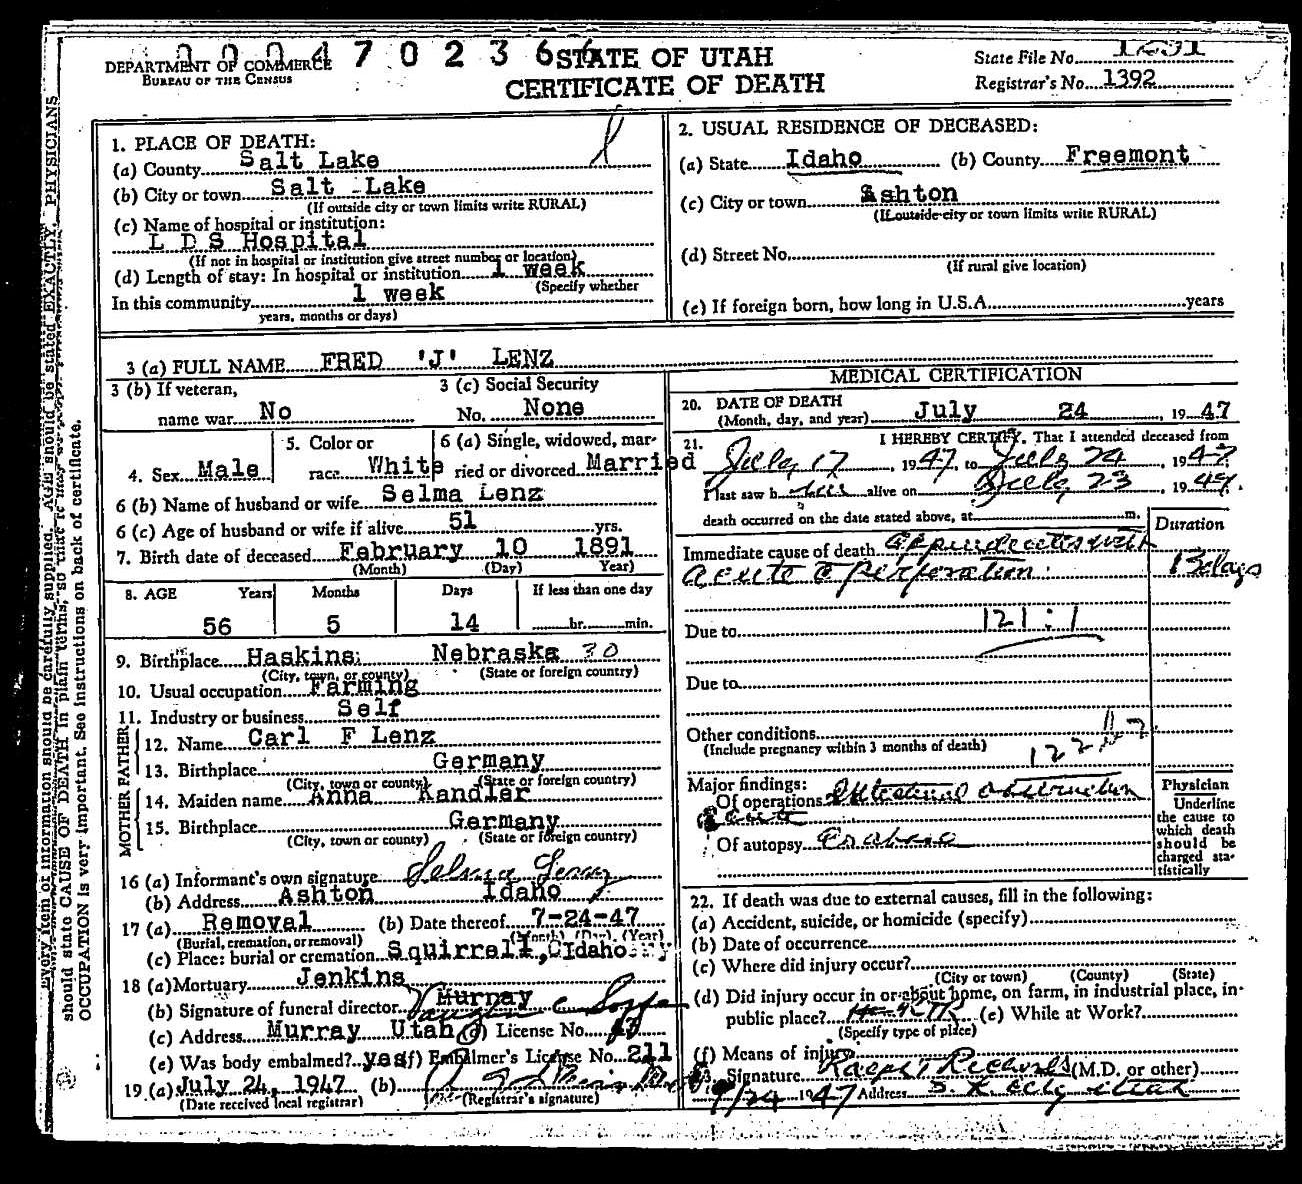 0004702366
DEPARTMENT OF COMMERCE
BUREAU OF THE CENSUS
STATE OF UTAH
CERTIFICATE OF DEATH
State File No.
Registrar's No. 1392
Every item of information should be carefully supplied. AGE should be stated EXACTLY. PHYSICIANS
should state CAUSE OF DEATH in plain terms, so that it may be
OCCUPATION is very important. See instructions on back of certificate.
1. PLACE OF DEATH:
(a) County Salt Lake
(b) City or town Salt Lake
(If outside city or town limits write RURAL)
(c) Name of hospital or institution:
L D S Hospital
(If not in hospital or institution give street number or location)
(d) Length of stay: In hospital or institution 1 week
(Specify whether
In this community 1 week
years, months or days)
2. USUAL RESIDENCE OF DECEASED:
(a) State Idaho (b) County Freemont
(c) City or town Ashton
(If outside city or town limits write RURAL)
(d) Street No.
(If rural give location)
(e) If foreign born, how long in U.S.A. years
3 (a) FULL NAME FRED 'J' LENZ
3 (b) If veteran,
name war No
3 (c) Social Security
No. None
4. Sex Male
5. Color or
race White
6 (a) Single, widowed, mar-
ried or divorced Married
6 (b) Name of husband or wife Selma Lenz
6 (c) Age of husband or wife if alive 51 yrs.
7. Birth date of deceased February 10 1891
(Month) (Day) Year)
8. AGE Years Months Days If less than one day
56 5 14 hr. min.
9. Birthplace Haskins Nebraska 30
(City, town, or county) (State or foreign country)
10. Usual occupation Farming
11. Industry or business Self
FATHER
12. Name Carl F Lenz
13. Birthplace Germany
(City, town or county) (State or foreign country)
MOTHER
14. Maiden name Anna Kandler
15. Birthplace Germany
(City, town or county) (State or foreign country)
16 (a) Informant's own signature Selma Lenz
(b) Address Ashton Idaho
17 (a) Removal (b) Date thereof 7-24-47
(Burial, cremation, or removal) (Month) (Day) (Year)
(c) Place: burial or cremation Squirrell, Idaho
18 (a) Mortuary Jenkins
(b) Signature of funeral director Murray
(c) Address Murray Utah (d) License No.
(e) Was body embalmed? yes (f) Embalmer's License No. 211
19 (a) July 24, 1947 (b)
(Date received local registrar) (Registrar's signature)
MEDICAL CERTIFICATION
20. DATE OF DEATH
(Month, day, and year) July 24, 1947
21. I HEREBY CERTIFY, That I attended deceased from
July 17, 1947, to July 24, 1947
I last saw him alive on July 23, 1947.
death occurred on the date stated above, at m.
Duration
Immediate cause of death appendicitis with
acute perforation 13 days
Due to 121:1
Due to
Other conditions
(Include pregnancy within 3 months of death)
122
Major findings:
Of operations Intestinal obstruction
acute
Of autopsy
Physician
Underline
the cause to
which death
should be
charged sta-
tistically
22. If death was due to external causes, fill in the following:
(a) Accident, suicide, or homicide (specify)
(b) Date of occurrence
(c) Where did injury occur?
(City or town) (County) (State)
(d) Did injury occur in or about home, on farm, in industrial place, in
public place? (e) While at Work?
(Specify type of place)
(f) Means of injury
23. Signature Ralph T Richards (M.D. or other)
1947 Address S L City Utah